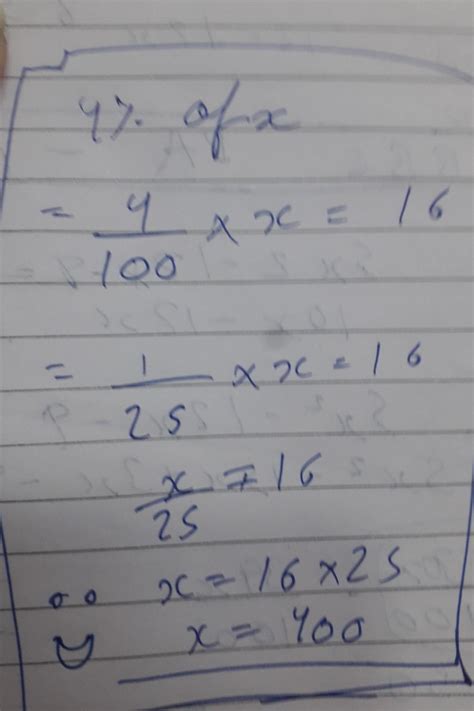 4% of x
= 4/100 × x = 16
= 1/25 × x = 16
x/25 = 16
x = 16 × 25
x = 400